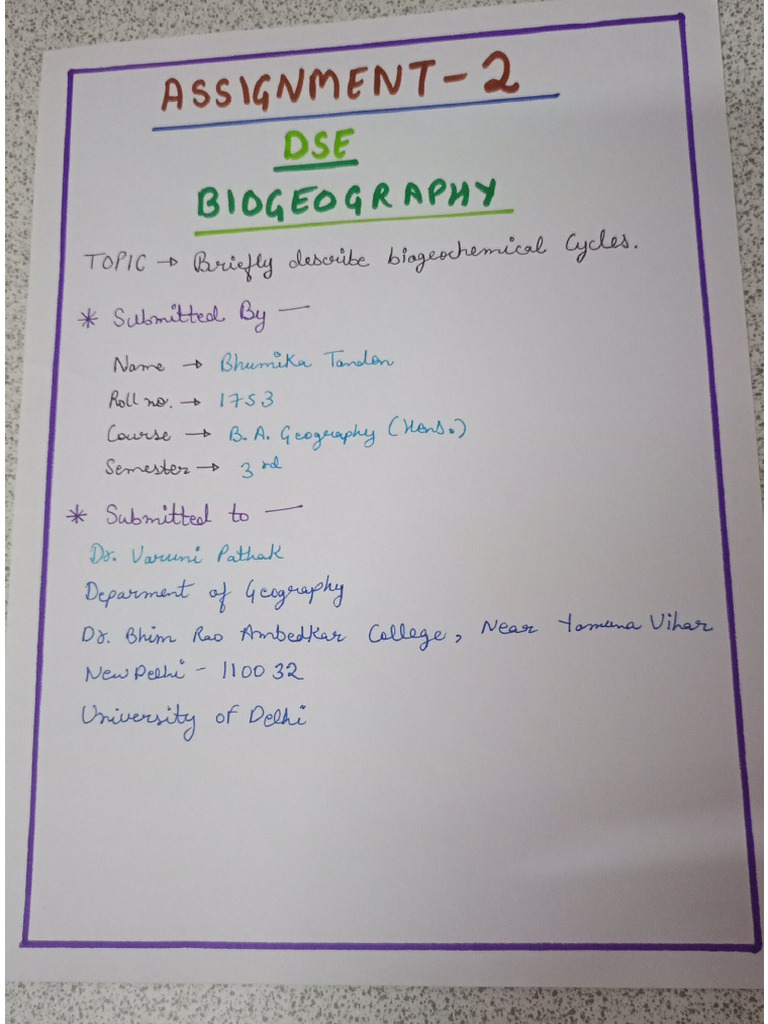 ASSIGNMENT-2
DSE
BIOGEOGRAPHY
TOPIC → Briefly describe biogeochemical Cycles.
* Submitted By —
Name → Bhumika Tandon
Roll no. → 1753
Course → B.A. Geography (Hons.)
Semester → 3rd
* Submitted to —
Dr. Varuni Pathak
Deparment of Geography
Dr. Bhim Rao Ambedkar College, Near Yamuna Vihar
New Delhi - 110032
University of Delhi